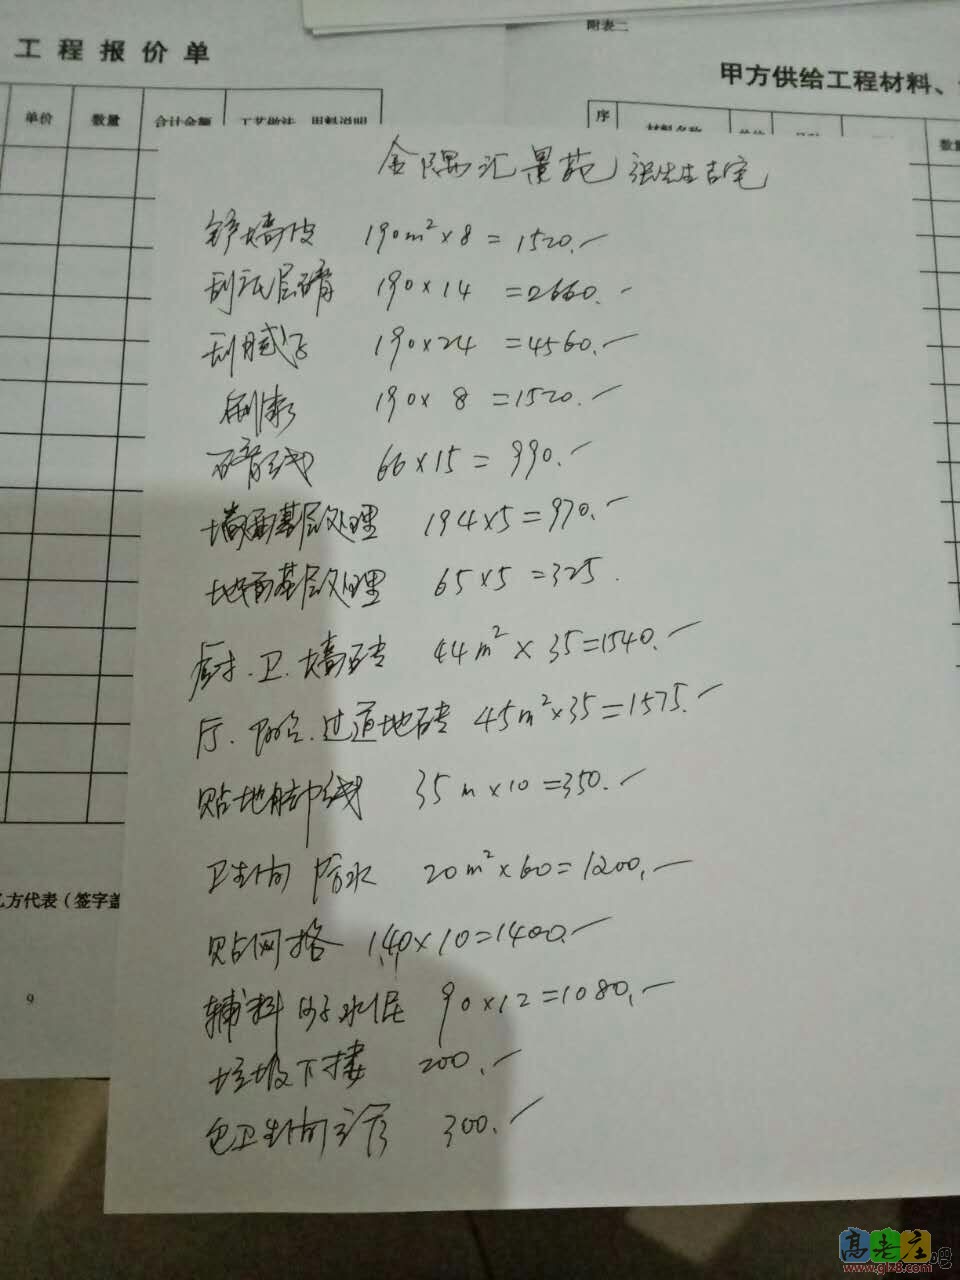 附表二
工程报价单
甲方供给工程材料、
单价 数量 合计金额 工艺做法、用料说明
序 材料名称 数量
金隅汇景苑 张先生吉宅
铲墙皮 190m²×8=1520.-
刮底层石膏 190×14=2660.-
刮腻子 190×24=4560.-
刷漆 190×8=1520.-
石膏线 66×15=990.-
墙面基层处理 194×5=970.-
地面基层处理 65×5=325.
厨.卫.墙砖 44m²×35=1540.-
厅.阳台.过道地砖 45m²×35=1575.-
贴地脚线 35m×10=350.-
卫生间防水 20m²×60=1200.-
贴网格 140×10=1400.-
辅料沙子水泥 90×12=1080.-
垃圾下楼 200.-
包卫生间立管 300.-
乙方代表(签字盖
9
高老庄吧
www.glz8.com